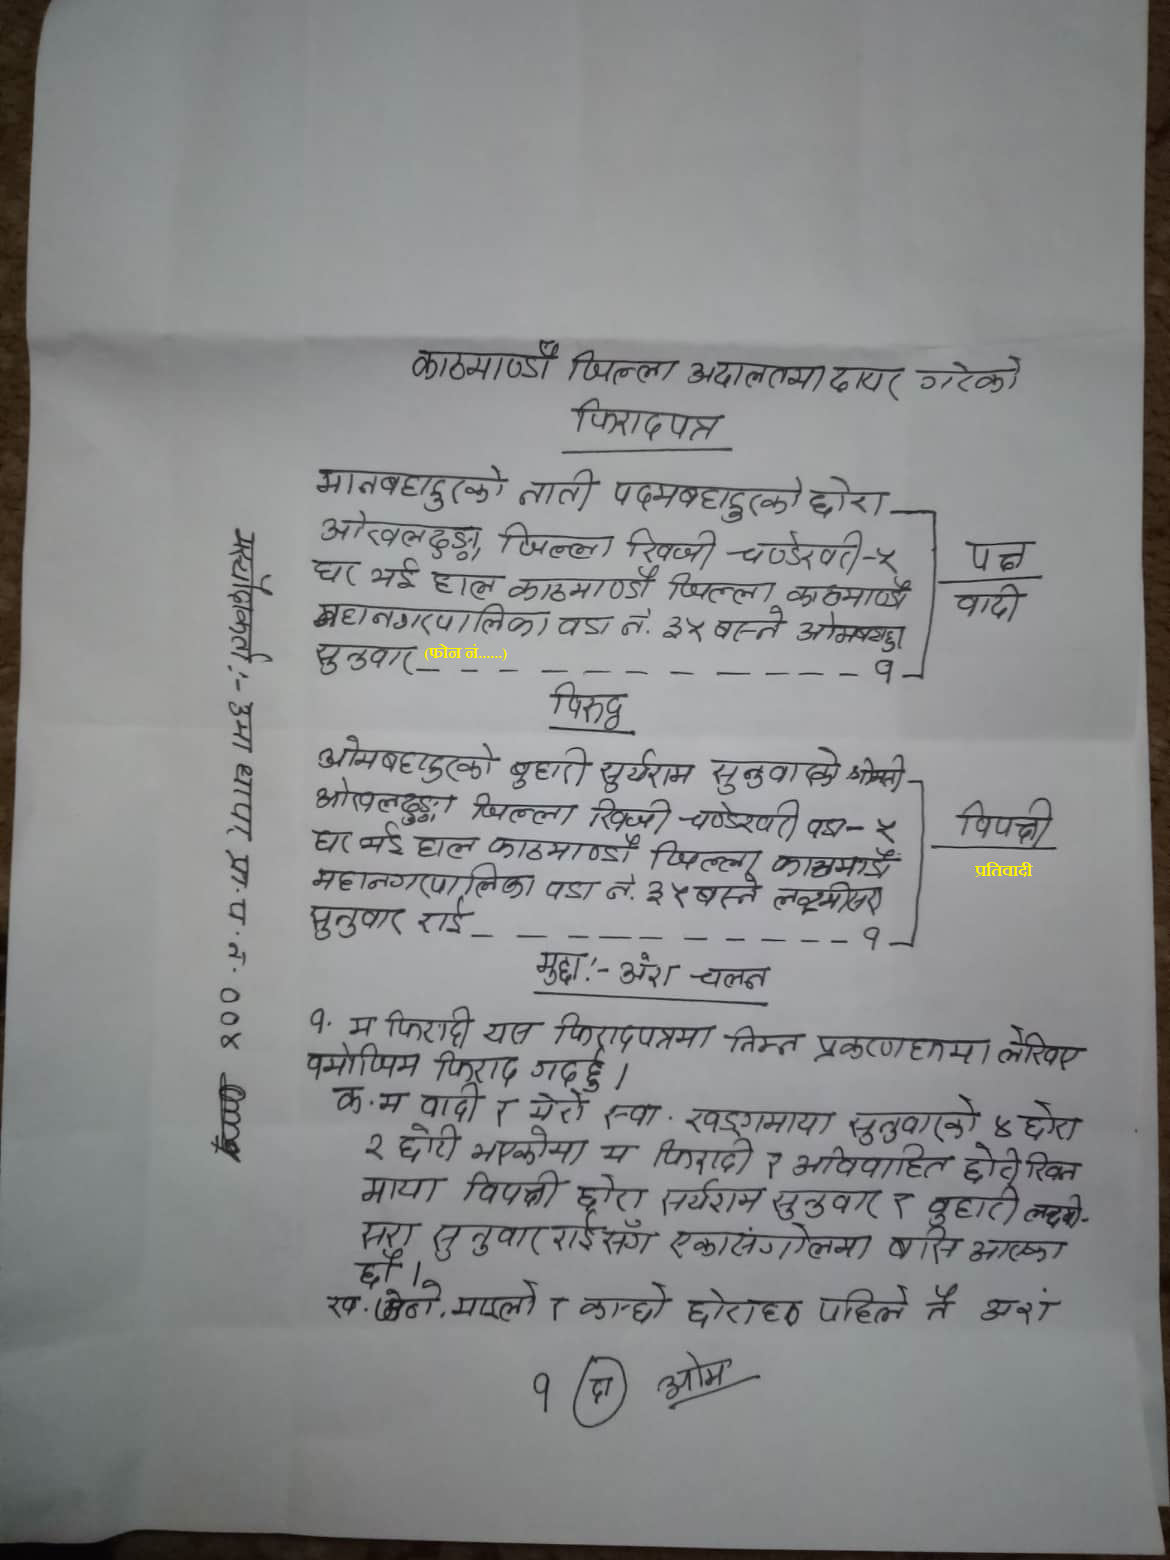 काठमाण्डौं जिल्ला अदालतमा दायर गरेको
फिरादपत्र
मानबहादुरको नाती पदमबहादुरको छोरा
ओखलढुङ्गा जिल्ला खिजी चण्डेश्वरी-५
घर भई हाल काठमाण्डौ जिल्ला काठमाण्डौ
महानगरपालिका वडा नं. ३५ बस्ने ओमबहादुर
सुनुवार (फोन नं......) – – – – – – – – – – – १
पक्ष
वादी
विरुद्ध
ओमबहादुरको बुहारी सुर्यराम सुनुवारको श्रीमती
ओखलढुङ्गा जिल्ला खिजी चण्डेश्वरी वडा-५
घर भई हाल काठमाण्डौं जिल्ला काठमाडौं
महानगरपालिका वडा नं. ३५ बस्ने लक्ष्मीसरा
सुनुवार राई – – – – – – – – – – – १
विपक्षी
प्रतिवादी
मुद्दा:- अंश चलन
१. म फिरादी यस फिरादपत्रमा निम्न प्रकरणहरुमा लेखिए
बमोजिम फिराद गर्दछु।
क. म वादी र मेरो स्वा. खड्गमाया सुनुवारको ४ छोरा
२ छोरी भएकोमा म फिरादी र अविवाहित छोरी रिक्त
माया विपक्षी छोरा सर्यराम सुनुवार र बुहारी लक्ष्मी-
सरा सुनुवार राईसँग एकासंगोलमा बसि आएका
छौं।
ख. जेठो, माइलो र कान्छो छोराहरु पहिले नै अंश
१ दा ओम
मस्यौदाकर्ता:- उमा थापा प्र.प.नं. ००४